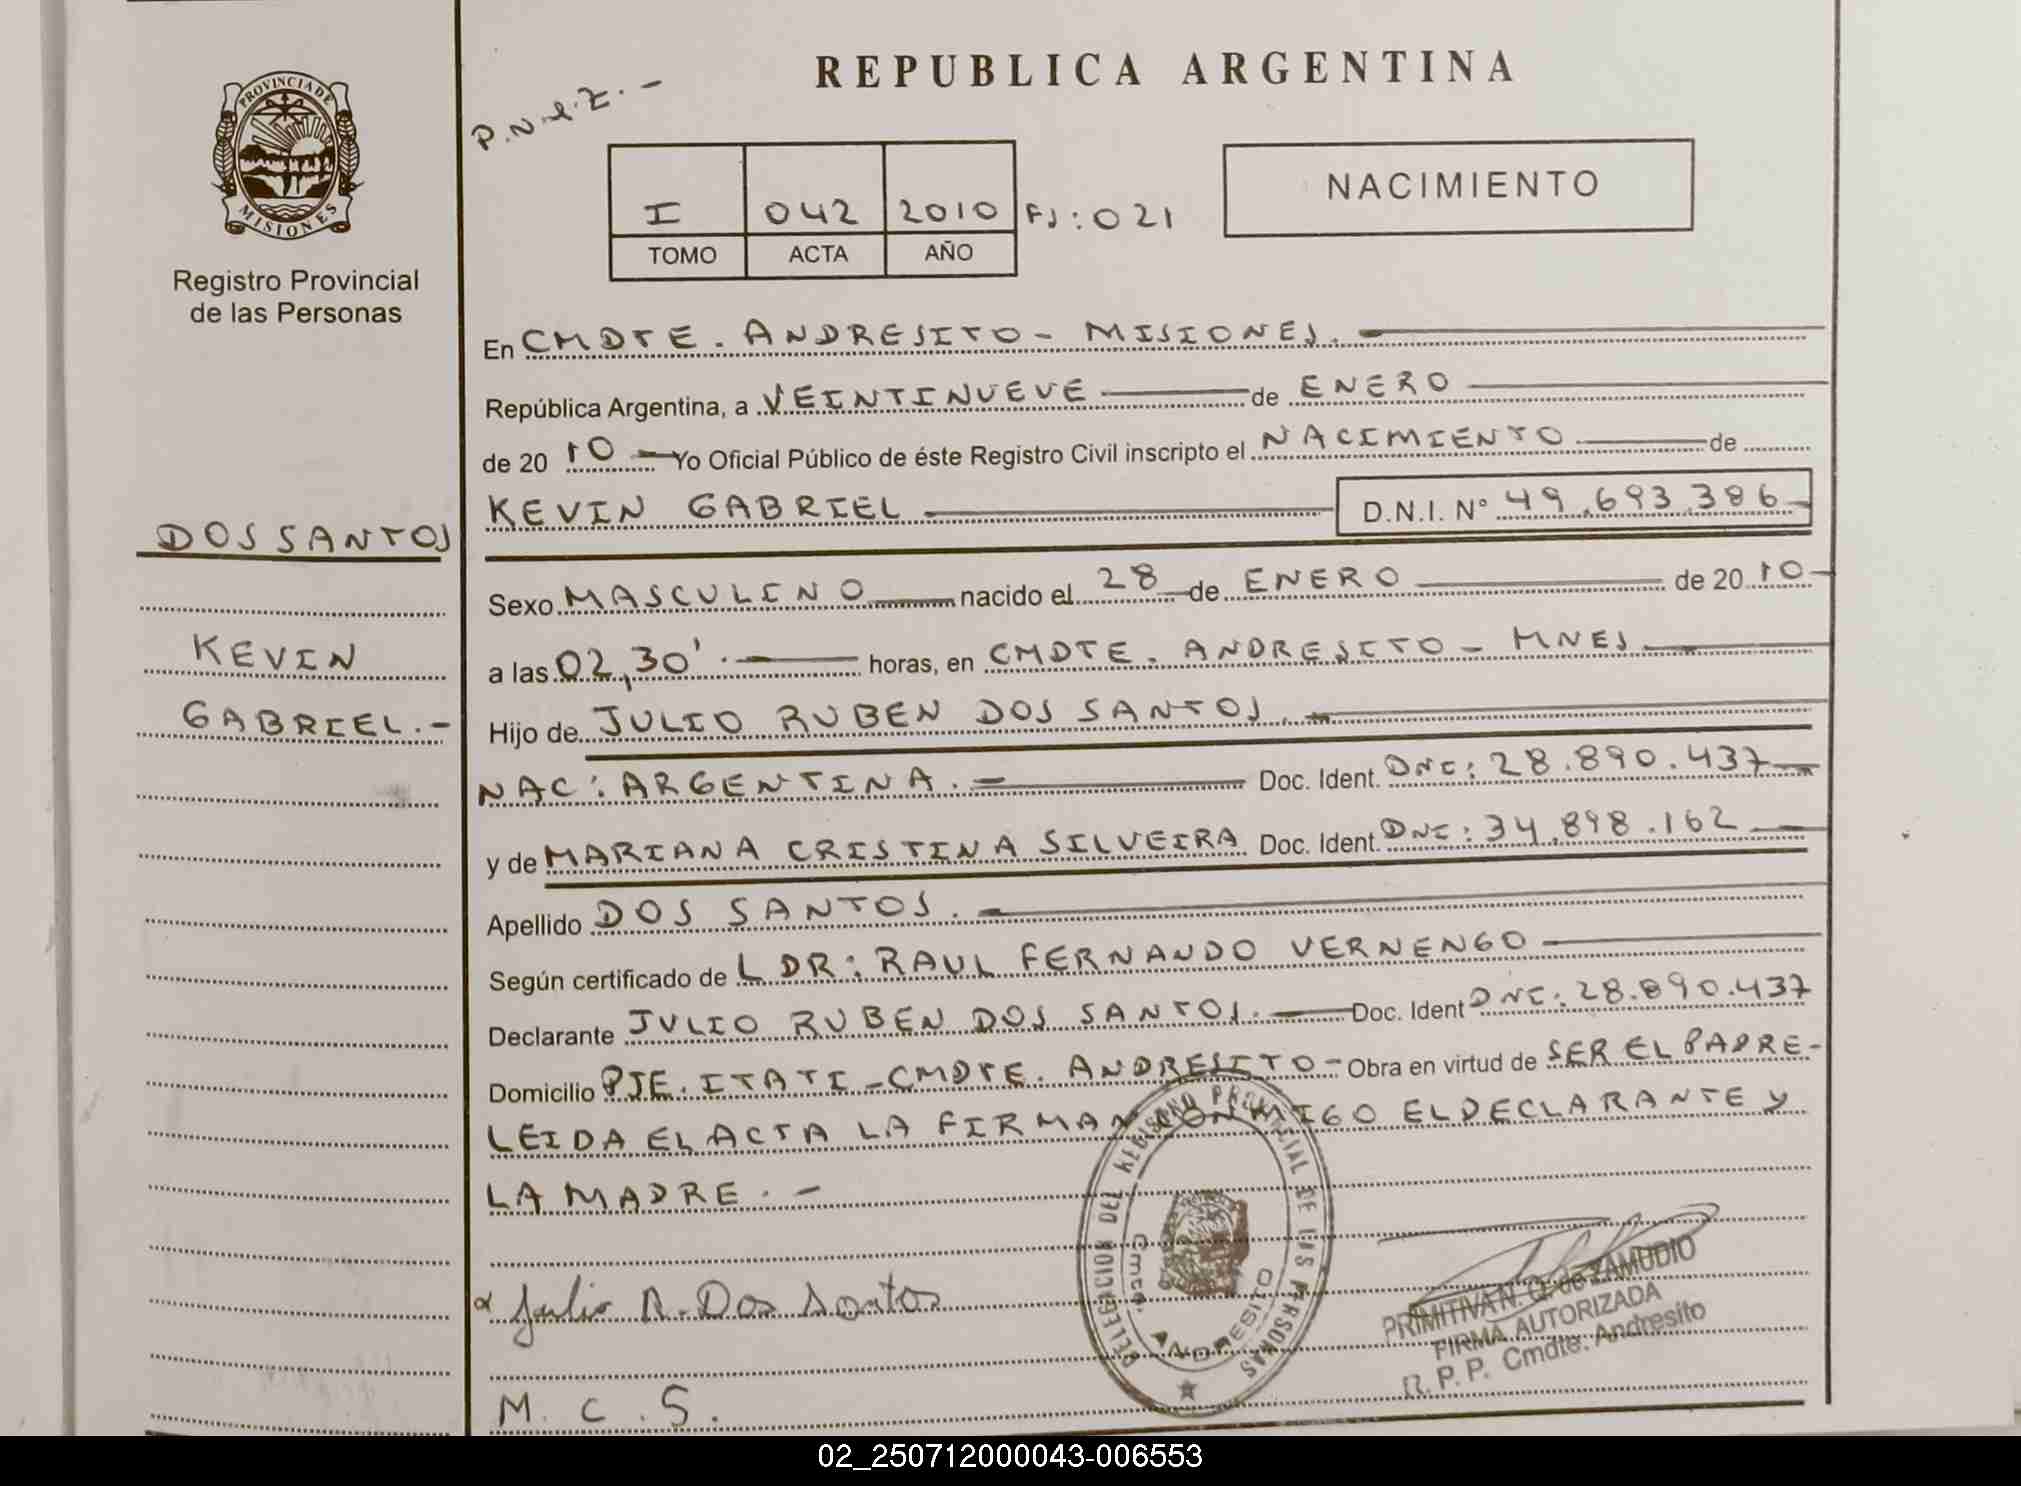 REPUBLICA ARGENTINA
PROVINCIA DE
MISIONES
Registro Provincial
de las Personas
I 042 2010 FJ: 021
TOMO ACTA AÑO
NACIMIENTO
En CMDTE. ANDRESITO - MISIONES.
República Argentina, a VEINTINUEVE de ENERO
de 20 10 Yo Oficial Público de éste Registro Civil inscripto el NACIMIENTO de
KEVIN GABRIEL D.N.I. N° 49.693.386
DOS SANTOS
Sexo MASCULINO nacido el 28 de ENERO de 20 10
KEVIN
a las 02,30'. horas, en CMDTE. ANDRESITO - MNES
GABRIEL.-
Hijo de JULIO RUBEN DOS SANTOS.
NAC: ARGENTINA. Doc. Ident. DNI: 28.890.437
y de MARIANA CRISTINA SILVEIRA Doc. Ident. DNI: 34.898.162
Apellido DOS SANTOS.
Según certificado de L DR: RAUL FERNANDO VERNENGO
Declarante JULIO RUBEN DOS SANTOS. Doc. Ident DNI: 28.890.437
Domicilio PJE. ITATI - CMDTE. ANDRESITO - Obra en virtud de SER EL PADRE -
LEIDA EL ACTA LA FIRMAN CONMIGO EL DECLARANTE Y
LA MADRE. -
DELEGACION DEL REGISTRO PROVINCIAL DE LAS PERSONAS
Cmte. ANDRESITO
Julio R. Dos Santos
PRIMITIVA N. Q. de ZAMUDIO
FIRMA AUTORIZADA
R. P. P. Cmdte. Andresito
M. C. S.
02_250712000043-006553